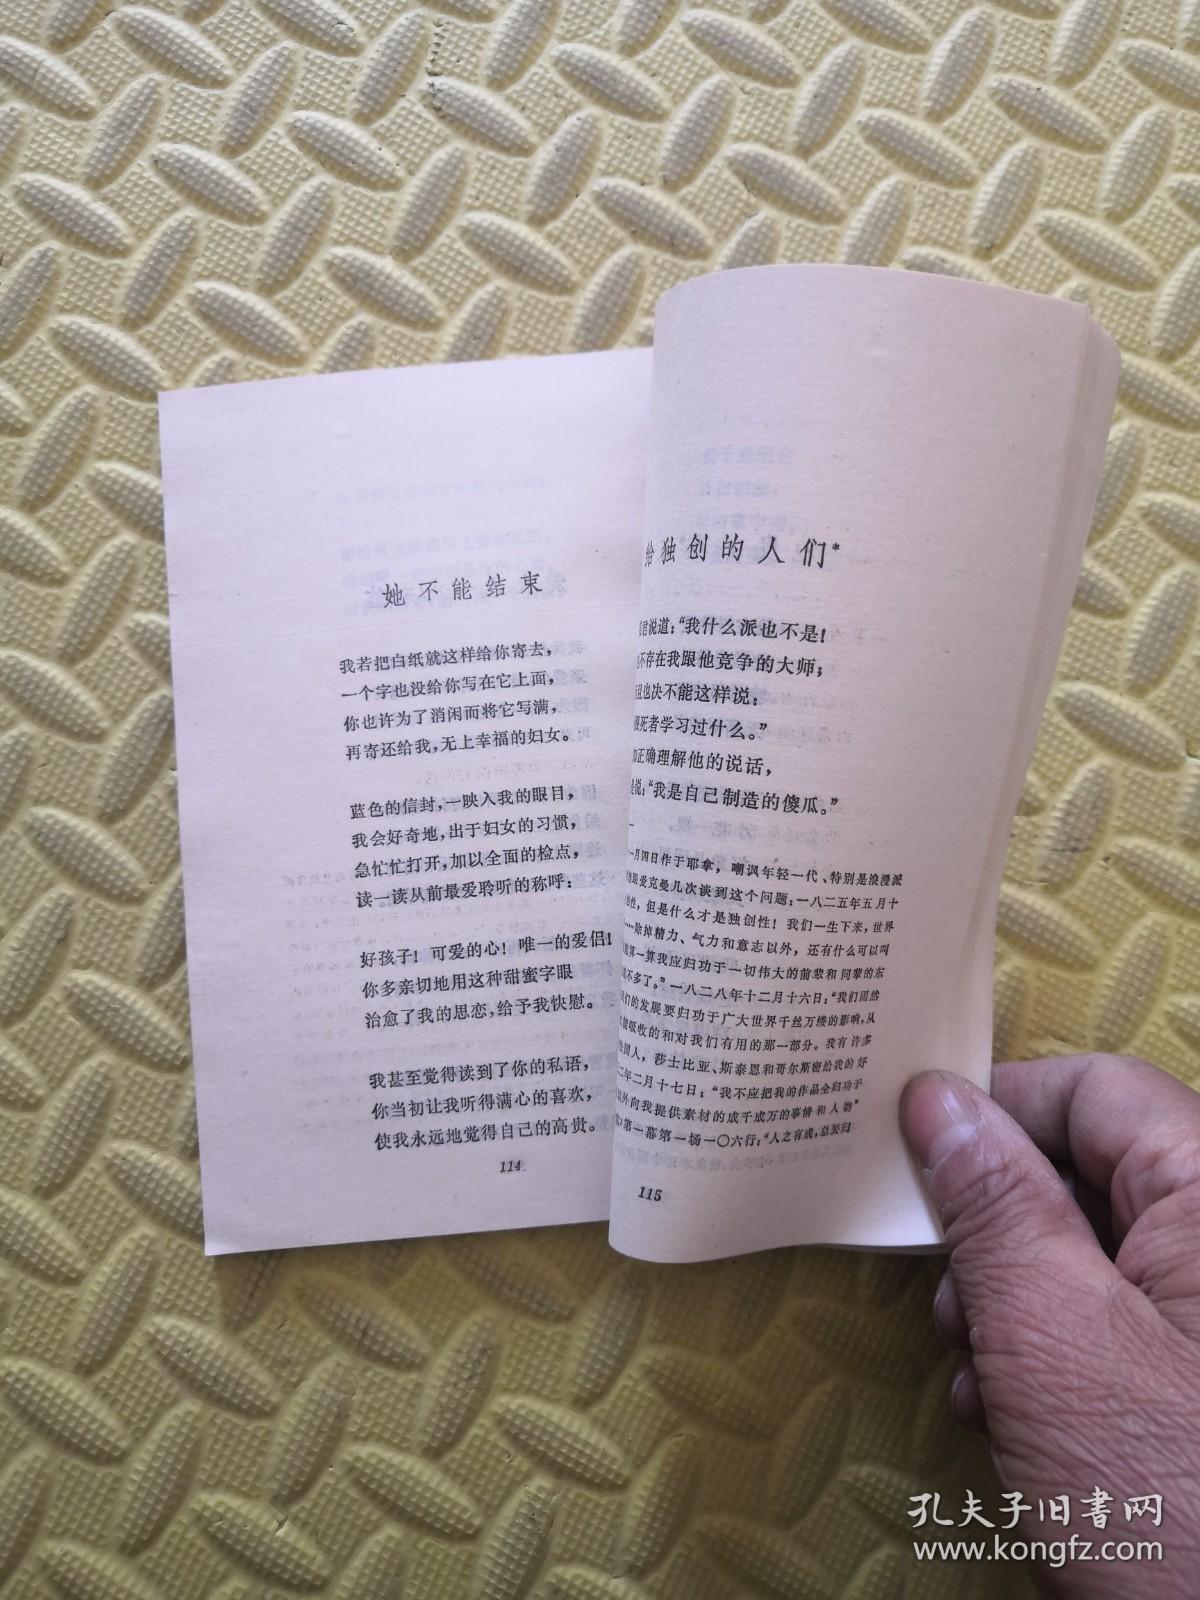 她不能结束
我若把白纸就这样给你寄去，
一个字也没给你写在它上面，
你也许为了消闲而将它写满，
再寄还给我，无上幸福的妇女。
蓝色的信封，一映入我的眼目，
我会好奇地，出于妇女的习惯，
急忙忙打开，加以全面的检点，
读一读从前最爱聆听的称呼：
好孩子！可爱的心！唯一的爱侣！
你多亲切地用这种甜蜜字眼
治愈了我的思恋，给予我快慰。
我甚至觉得读到了你的私语，
你当初让我听得满心的喜欢，
使我永远地觉得自己的高贵。
114
给独创的人们*
君说道：“我什么派也不是！
不存在我跟他竞争的大师；
且也决不能这样说：
死者学习过什么。”
正确理解他的说话，
说：“我是自己制造的傻瓜。”
一月四日作于耶拿，嘲讽年轻一代、特别是浪漫派
跟爱克曼几次谈到这个问题：一八二五年五月十
性，但是什么才是独创性！我们一生下来，世界
……除掉精力、气力和意志以外，还有什么可以叫
算一算我应归功于一切伟大的前辈和同辈的东
不多了。”一八二八年十二月十六日：“我们固然
们的发展要归功于广大世界千丝万缕的影响，从
吸收的和对我们有用的那一部分。我有许多
国人，莎士比亚、斯泰恩和哥尔斯密给我的好
二年二月十七日：“我不应把我的作品全归功于
以外向我提供素材的成千成万的事情和人物”
第一幕第一场一〇六行：“人之有成，总要归
115
孔夫子旧书网
www.kongfz.com